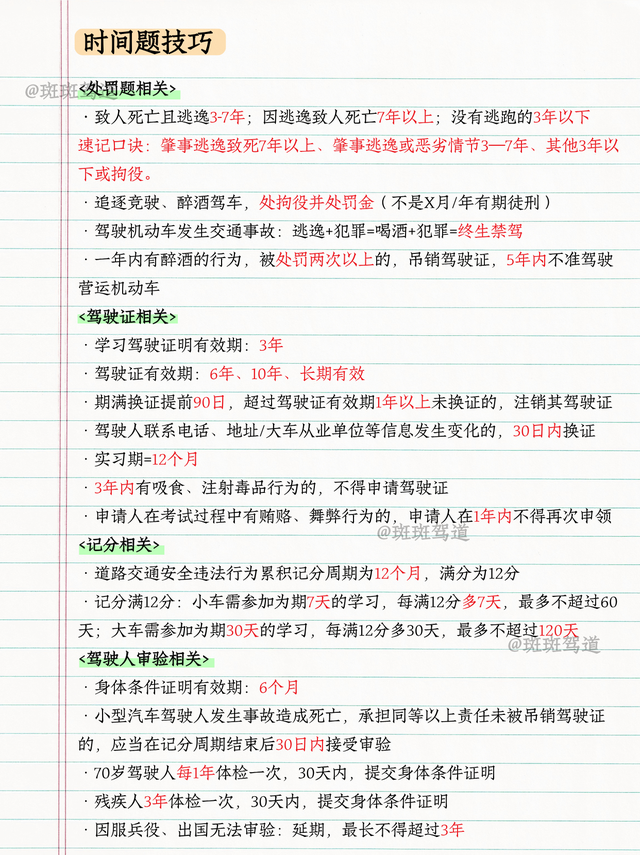 时间题技巧
@斑斑驾道
<处罚题相关>
·致人死亡且逃逸3-7年；因逃逸致人死亡7年以上；没有逃跑的3年以下
速记口诀：肇事逃逸致死7年以上、肇事逃逸或恶劣情节3—7年、其他3年以
下或拘役。
·追逐竞驶、醉酒驾车，处拘役并处罚金（不是X月/年有期徒刑）
·驾驶机动车发生交通事故：逃逸+犯罪=喝酒+犯罪=终生禁驾
·一年内有醉酒的行为，被处罚两次以上的，吊销驾驶证，5年内不准驾驶
营运机动车
<驾驶证相关>
·学习驾驶证明有效期：3年
·驾驶证有效期：6年、10年、长期有效
·期满换证提前90日，超过驾驶证有效期1年以上未换证的，注销其驾驶证
·驾驶人联系电话、地址/大车从业单位等信息发生变化的，30日内换证
·实习期=12个月
·3年内有吸食、注射毒品行为的，不得申请驾驶证
·申请人在考试过程中有贿赂、舞弊行为的，申请人在1年内不得再次申领
@斑斑驾道
<记分相关>
·道路交通安全违法行为累积记分周期为12个月，满分为12分
·记分满12分：小车需参加为期7天的学习，每满12分多7天，最多不超过60
天；大车需参加为期30天的学习，每满12分多30天，最多不超过120天
@斑斑驾道
<驾驶人审验相关>
·身体条件证明有效期：6个月
·小型汽车驾驶人发生事故造成死亡，承担同等以上责任未被吊销驾驶证
的，应当在记分周期结束后30日内接受审验
·70岁驾驶人每1年体检一次，30天内，提交身体条件证明
·残疾人3年体检一次，30天内，提交身体条件证明
·因服兵役、出国无法审验：延期，最长不得超过3年